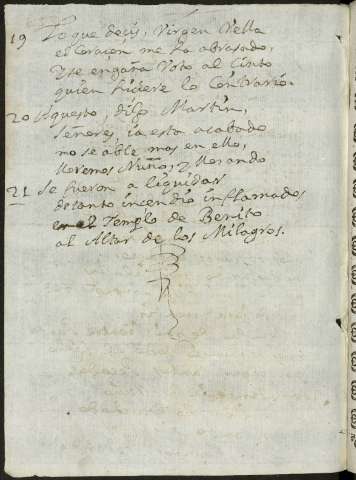 19 Lo que decis, Virgen Vella
el Coraçon me ha abrasado,
y se engaña Voto al Cinto
quien hiciere lo Contrario.
20 A questo, dijo Martin,
señores, ia esta acabado
no se able mas en ello,
lloremos Nuño, y llorando
21 se fueron a liquidar
de tanto incendio inflamados
en el Templo de Benito
al Altar de los Milagros.